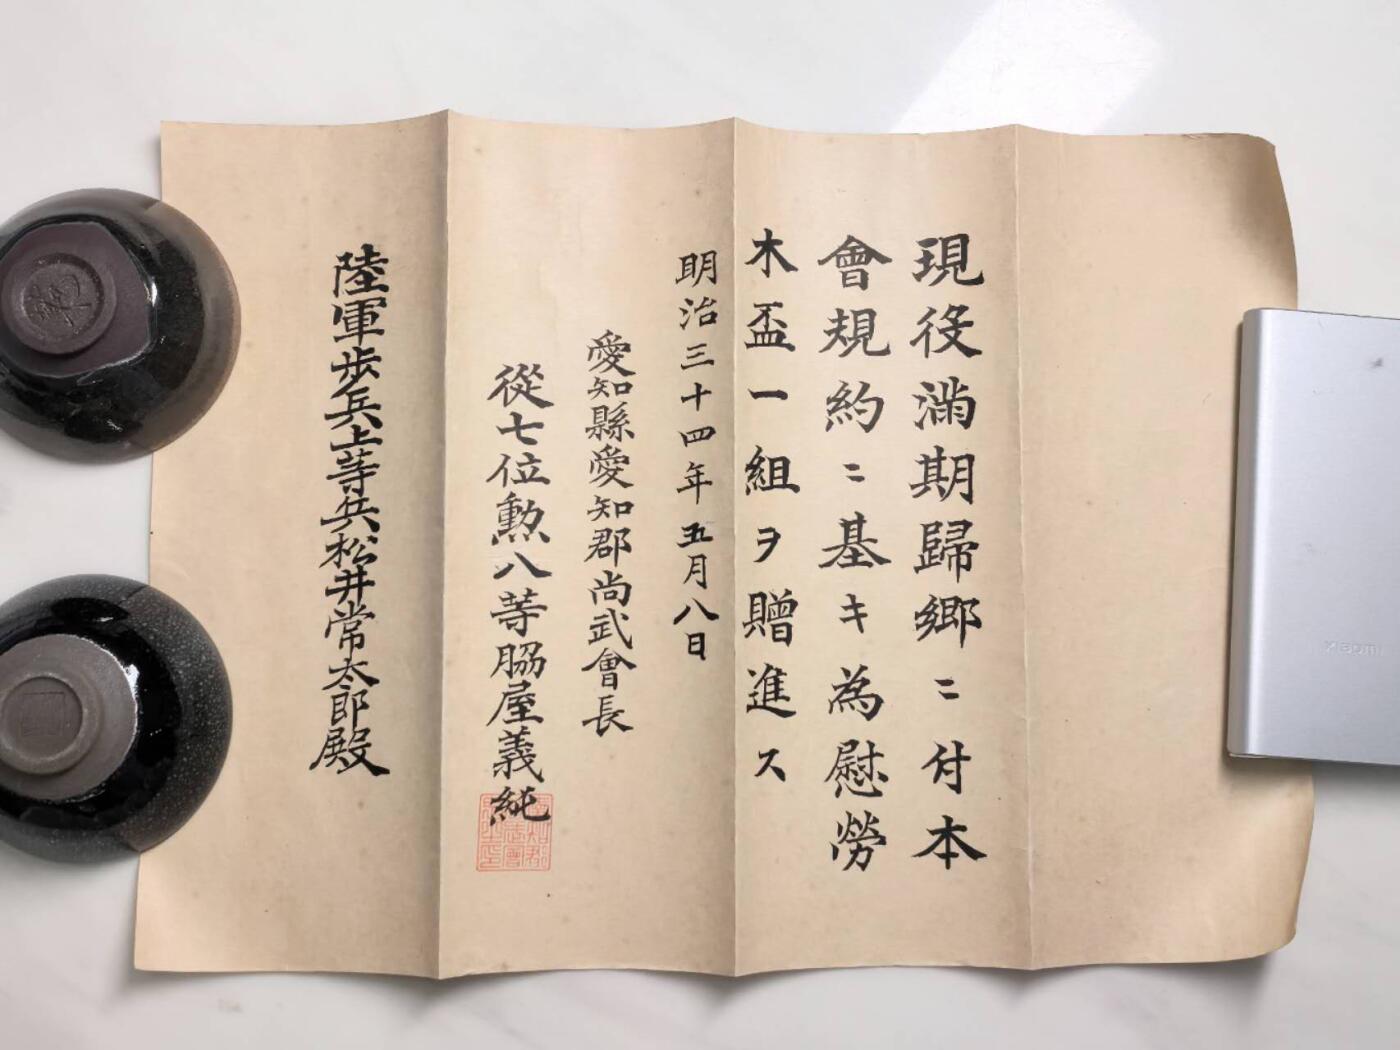 現役満期歸郷ニ付本
會規約ニ基キ為慰勞
木盃一組ヲ贈進ス
明治三十四年五月八日
愛知縣愛知郡尚武會長
從七位勲八等脇屋義純
陸軍歩兵上等兵松井常太郎殿
xiaomi